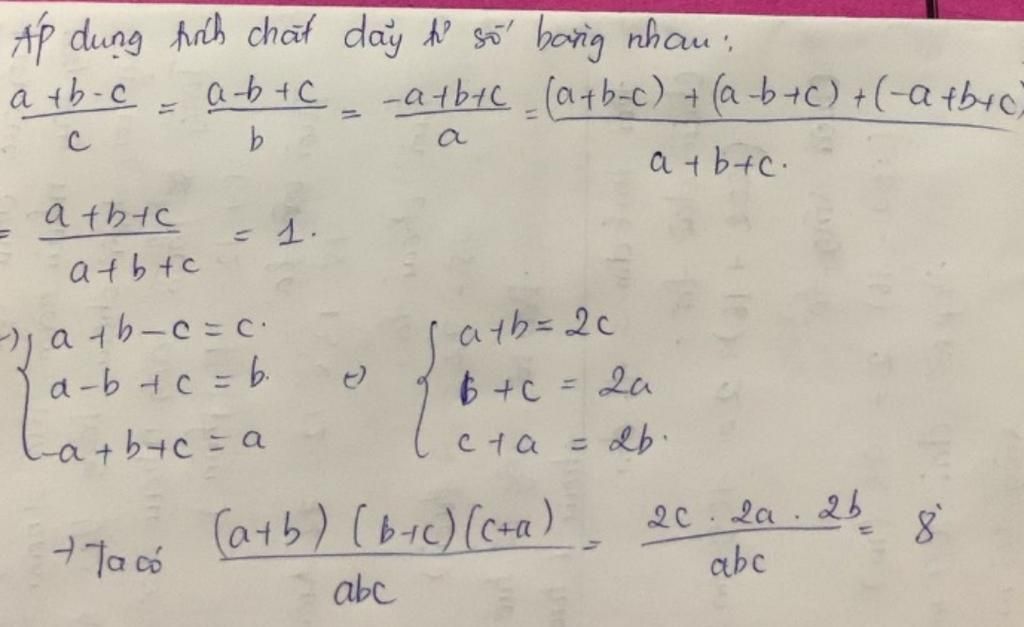 Áp dụng tính chất dãy tỉ số bằng nhau:
(a+b-c)/c = (a-b+c)/b = (-a+b+c)/a = ((a+b-c) + (a-b+c) + (-a+b+c))/(a+b+c).
= (a+b+c)/(a+b+c) = 1.
{ a+b-c = c. ⇔ { a+b = 2c
a-b+c = b. b+c = 2a
-a+b+c = a c+a = 2b.
→ Ta có ((a+b)(b+c)(c+a))/(abc) = (2c . 2a . 2b)/(abc) = 8